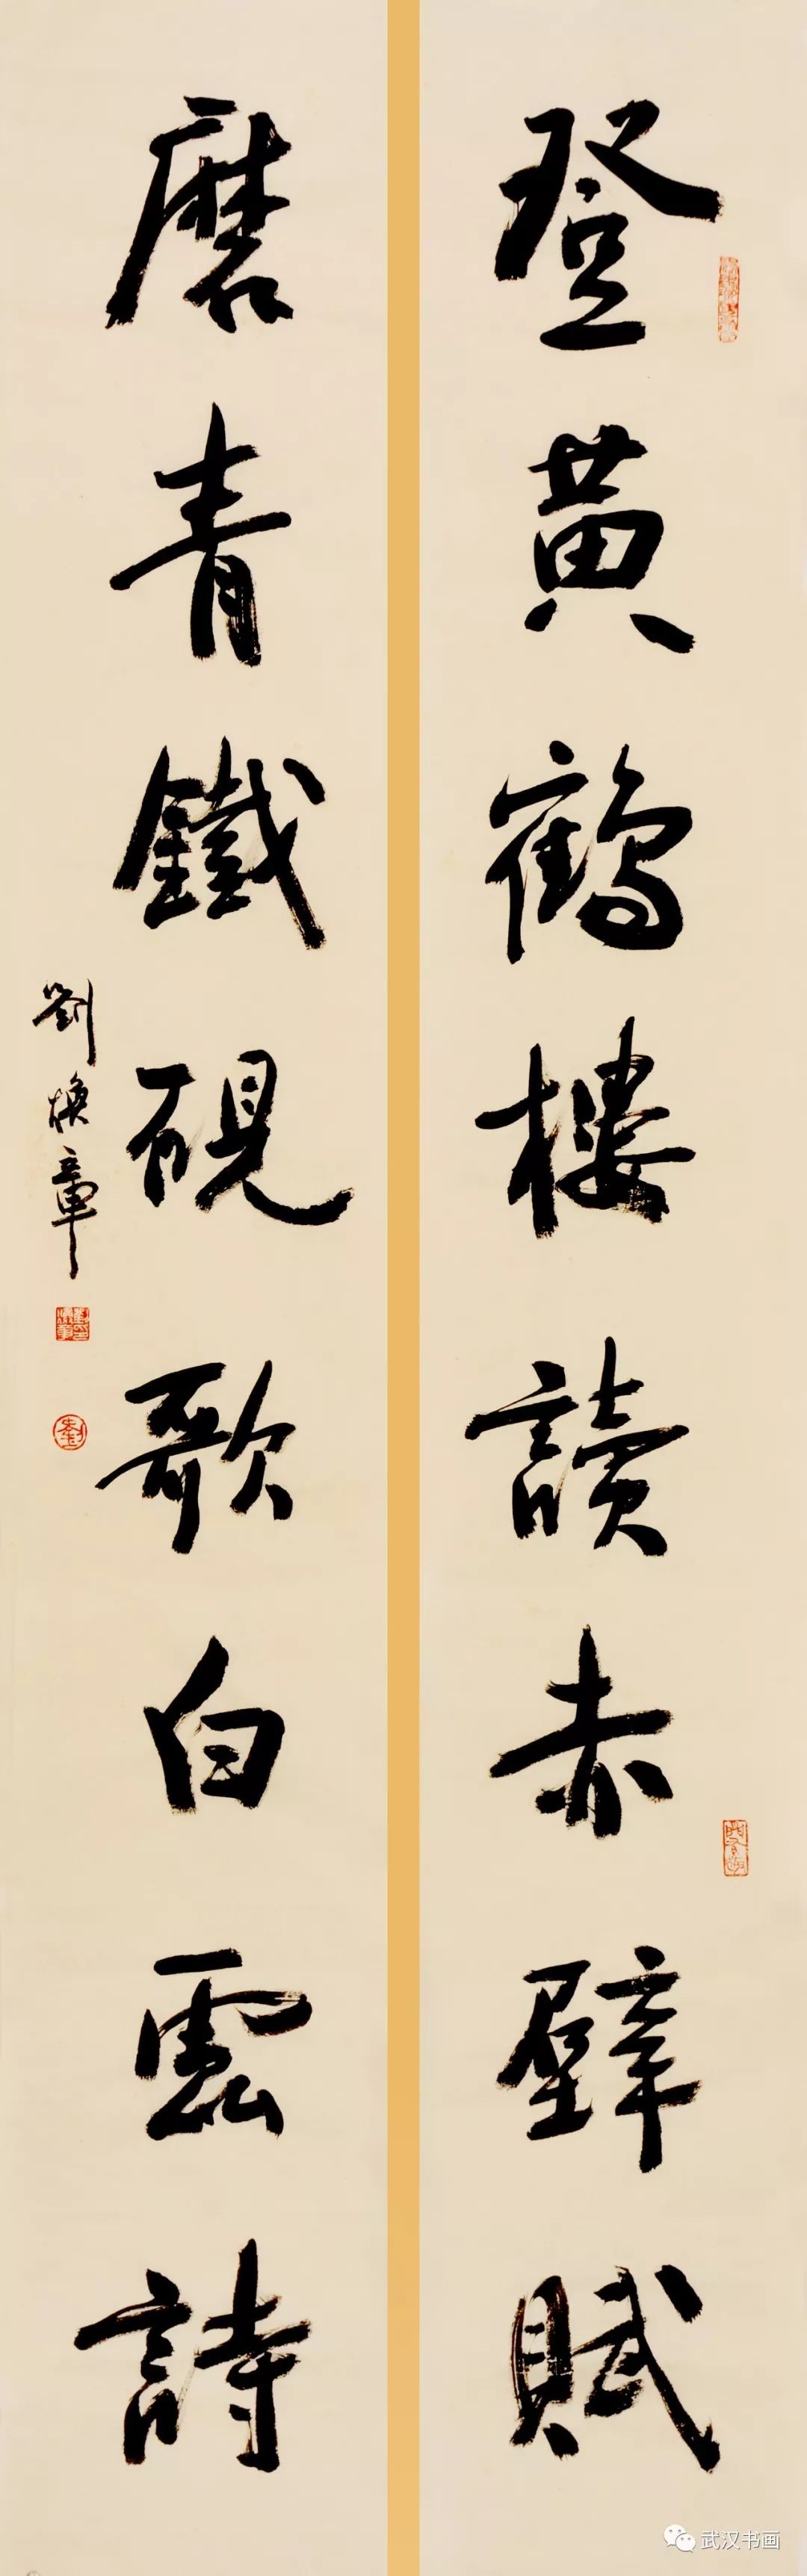 登黄鶴樓讀赤壁賦
磨青鐵硯歌白雲詩
劉煥章
武汉书画